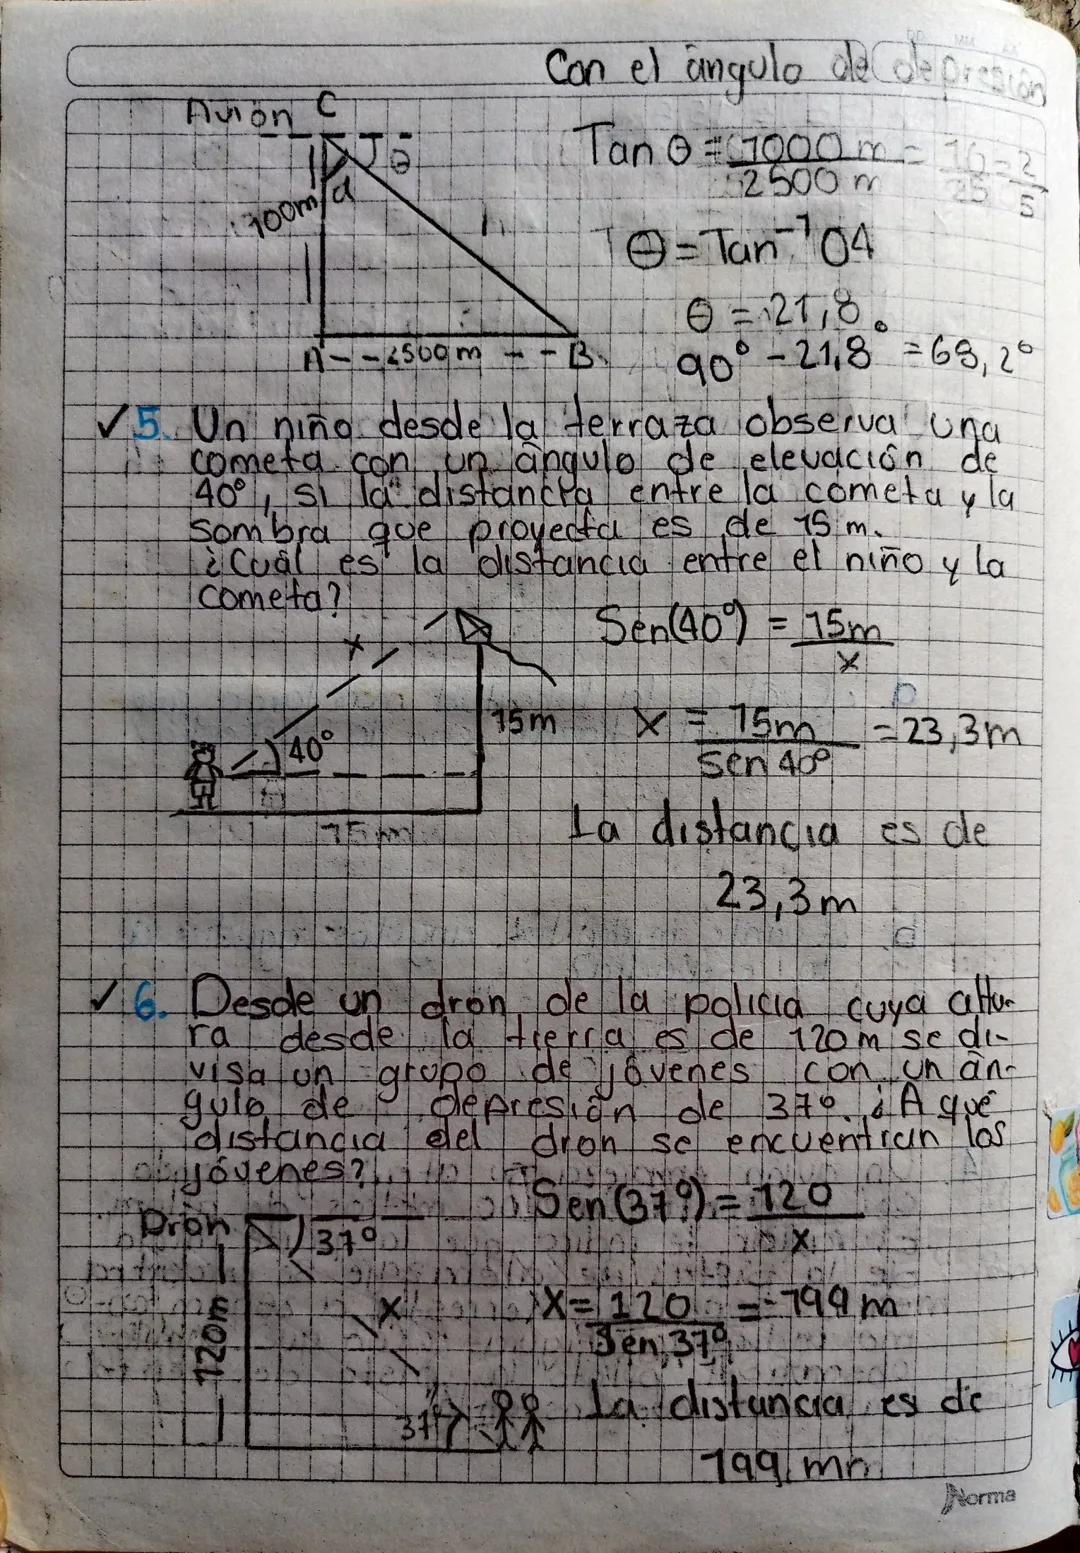 Con el ángulo de depresión
Avión C
Tan θ = 1000 m = 10 = 2
2500 m 25 5
θ
α
100m
h
θ = Tan⁻¹ 04
θ = 21,8°
A - - 2500 m - - B
90° - 21,8 = 68,2°
✓ 5. Un niño desde la terraza observa una
cometa con un ángulo de elevación de
40°, si la distancia entre la cometa y la
sombra que proyecta es de 15 m.
¿Cuál es la distancia entre el niño y la
cometa?
Sen(40°) = 15m
x
x
15m
x = 15m = 23,3m
Sen 40°
40°
15m
La distancia es de
23,3m
✓ 6. Desde un dron de la policia cuya altu-
ra desde la tierra es de 120 m se di-
visa un grupo de jóvenes con un án-
gulo de depresión de 37°. ¿A qué
distancia del dron se encuentran los
jóvenes?
Sen(37°) = 120
x
Dron
37°
x
X = 120 = 199 m
Sen 37°
120m
37°
La distancia es de
199 mn
Norma